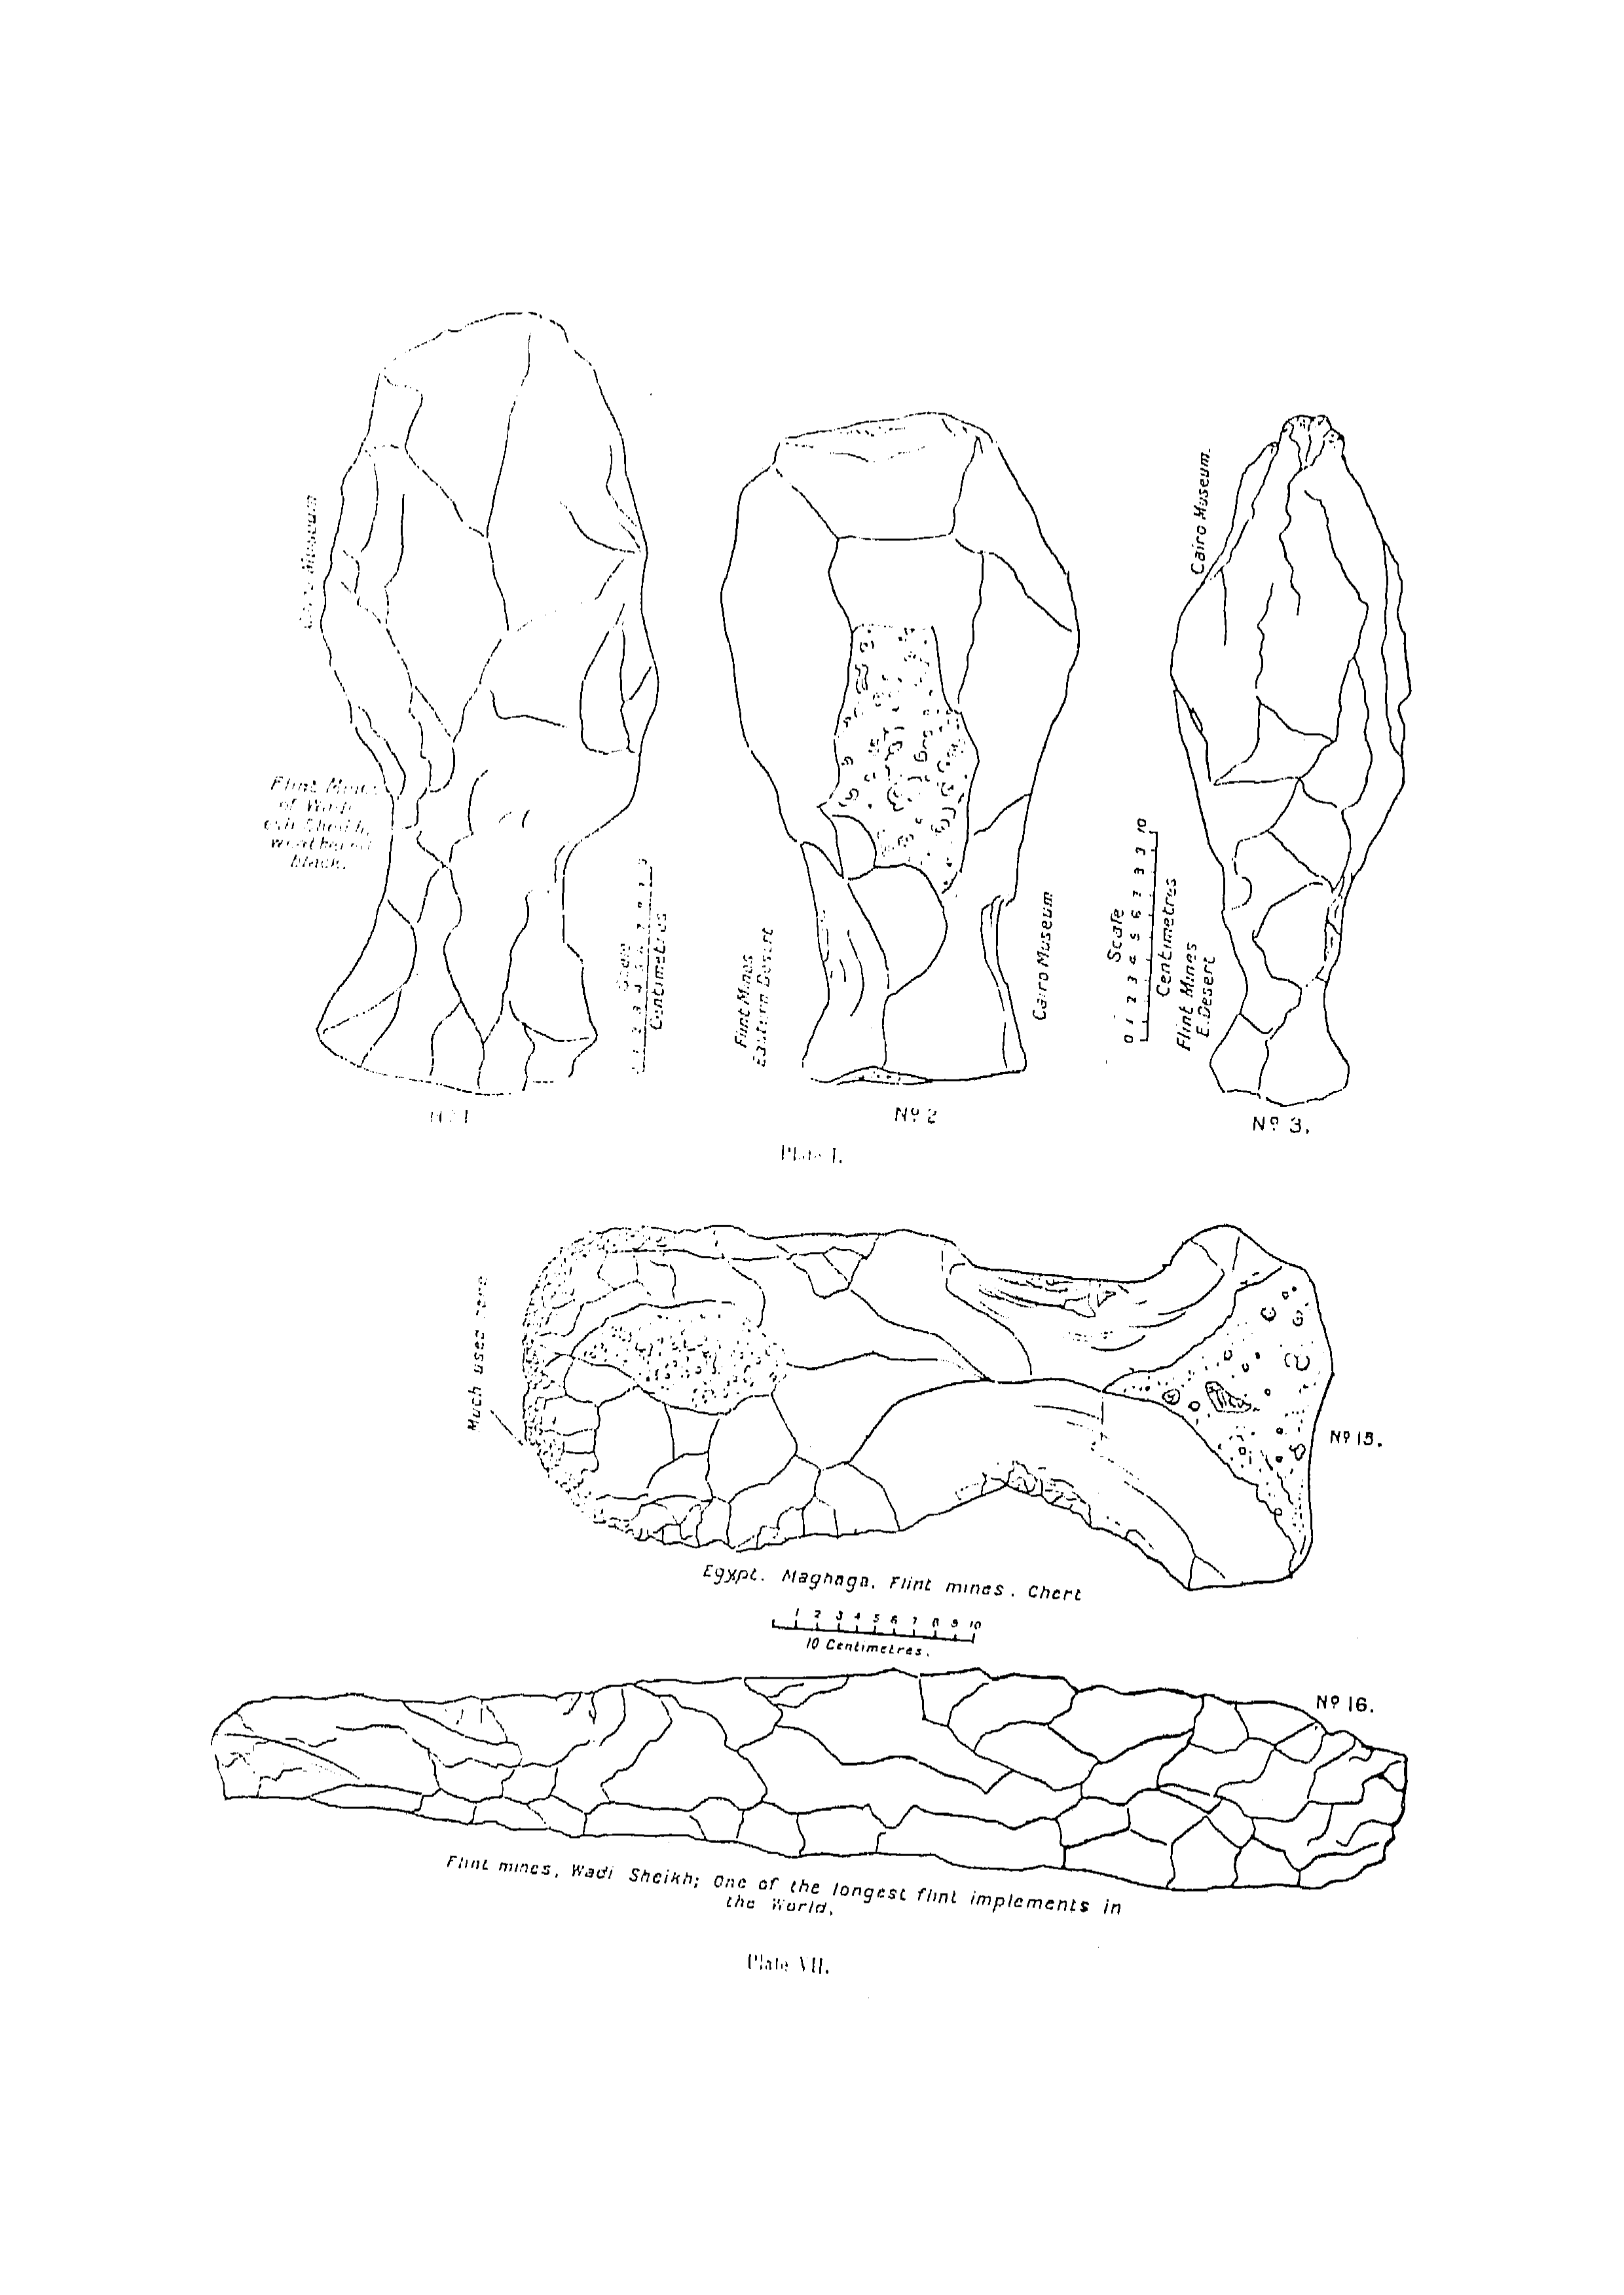 Museum
Flint Mines
of Wadi
esh Sheikh,
weathered
black.
Scale
Centimetres
Nº 1
Flint Mines
Eastern Desert
Cairo Museum
Nº 2
Cairo Museum.
Scale
0 1 2 3 4 5 6 7 8 9 10
Centimetres
Flint Mines
E. Desert
Nº 3.
Plate I.
Much used here
Nº 15.
Egypt. Maghaga. Flint mines. Chert
1 2 3 4 5 6 7 8 9 10
10 Centimetres.
Nº 16.
Flint mines, Wadi Sheikh; One of the longest flint implements in
the World.
Plate VII.